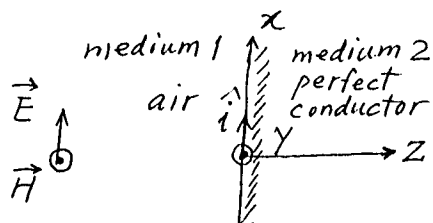 x
medium 1 medium 2
perfect
conductor
air
î
E⃗
H⃗
y
z